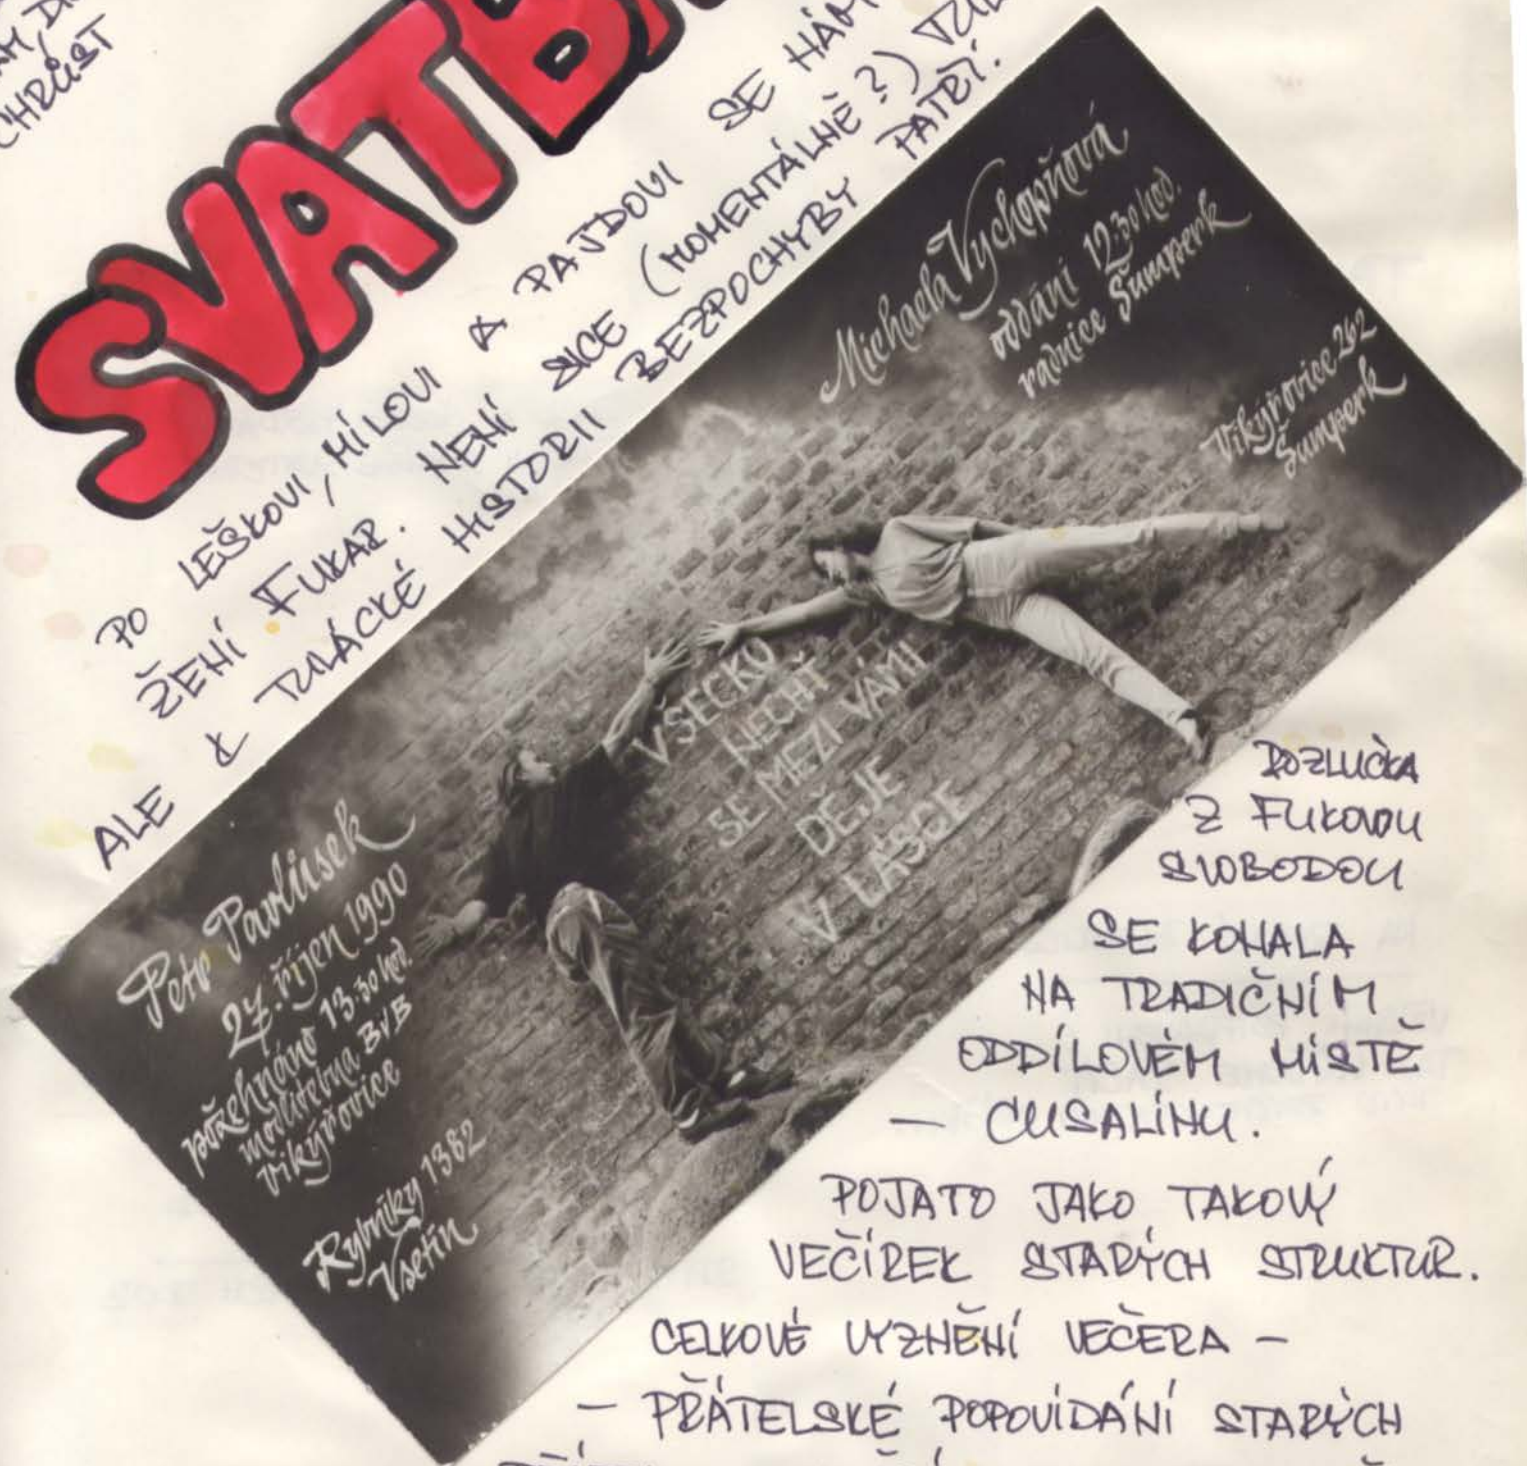 CHRŮST
SVATBA
PO LEŠKOVI, MÍLOVI A PAJDOVI SE HÁM
ŽENÍ FUKAR. NENÍ SICE (MOMENTÁLNĚ?)
ALE K TULÁCKÉ HISTORII BEZPOCHYBY PATŘÍ.
Michaela Vychopňová
oddáni 12.30 hod.
radnice Šumperk
Vikýřovice 262
Šumperk
VŠECKO
NECHŤ
SE MEZI VÁMI
DĚJE
V LÁSCE
Petr Pavlůsek
27. říjen 1990
požehnáno 13.30 hod.
modlitebna BvB
Vikýřovice
Rybníky 1382
Vsetín
ROZLUČKA
Z FUKOVOU
SVOBODOU
SE KONALA
NA TRADIČNÍM
ODDÍLOVÉM MÍSTĚ
— CUSALÍNU.
POJATO JAKO TAKOVÝ
VEČÍREK STARÝCH STRUKTUR.
CELKOVÉ VYZNĚNÍ VEČERA —
— PŘÁTELSKÉ POPOVÍDÁNÍ STARÝCH